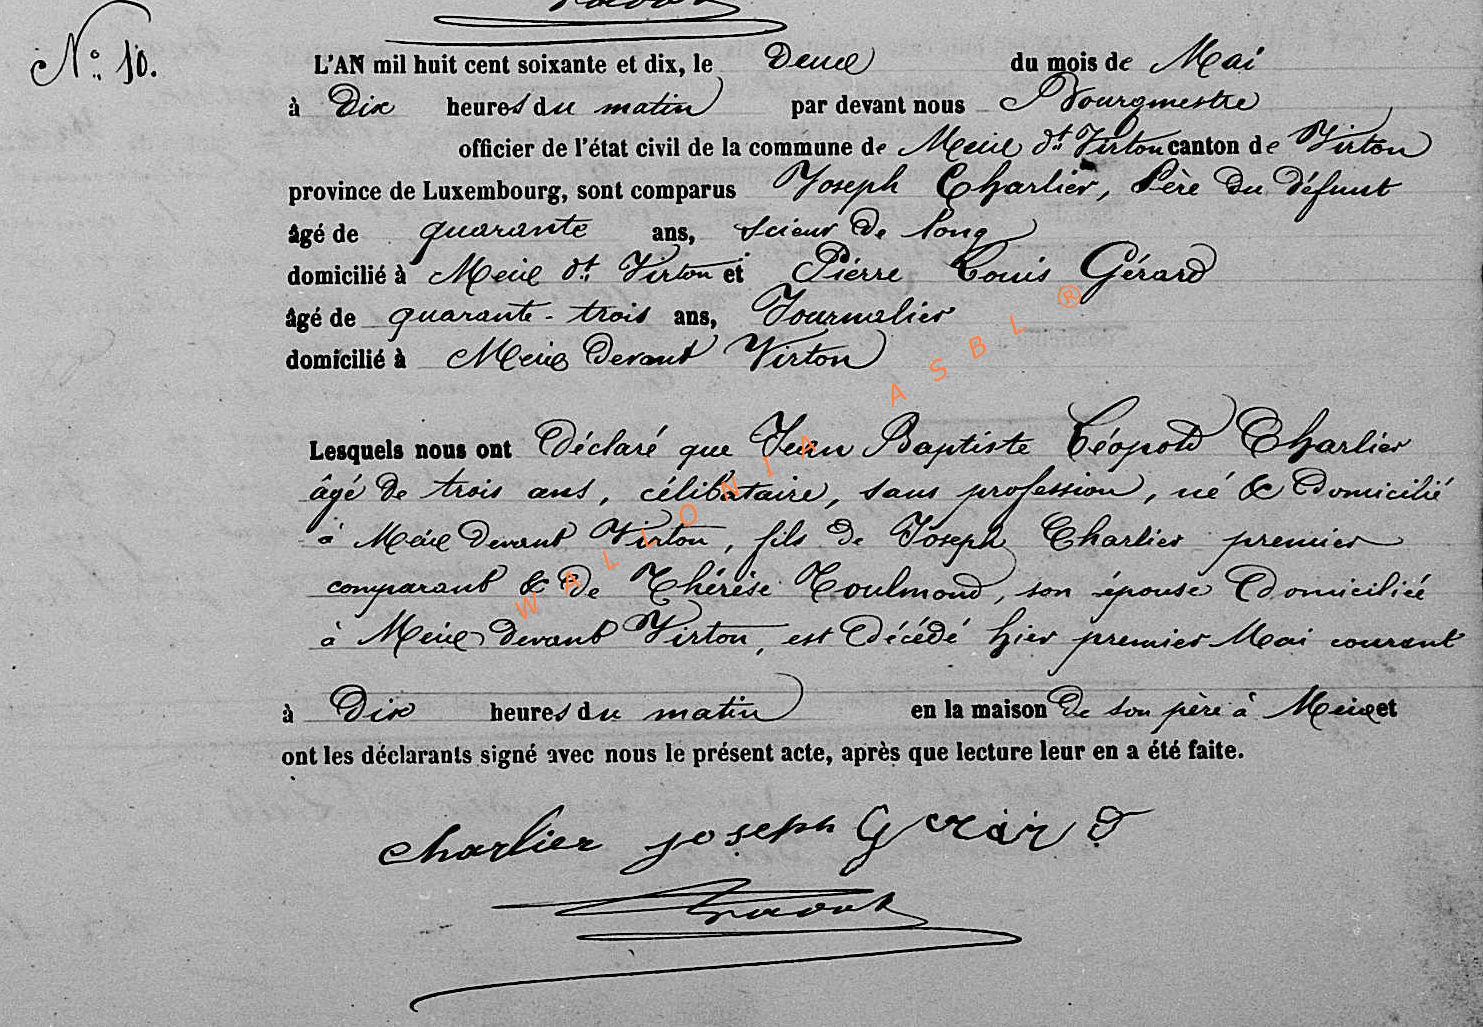 N° 10.
L'AN mil huit cent soixante et dix, le Deux du mois de Mai
à Dix heures du matin par devant nous Bourgmestre
officier de l'état civil de la commune de Meix dt Virton canton de Virton
province de Luxembourg, sont comparus Joseph Charlier, Père du défunt
âgé de quarante ans, scieur de long
domicilié à Meix dt Virton et Pierre Louis Gérard
âgé de quarante-trois ans, Journalier
domicilié à Meix devant Virton
Lesquels nous ont Déclaré que Jean Baptiste Léopold Charlier
âgé de trois ans, célibataire, sans profession, né & Domicilié
à Meix devant Virton, fils de Joseph Charlier premier
comparant & de Thérèse Toulmond, son épouse Domiciliée
à Meix devant Virton, est Décédé hier premier Mai courant
à Dix heures du matin en la maison de son père à Meix et
ont les déclarants signé avec nous le présent acte, après que lecture leur en a été faite.
charlier joseph Gerard
WALLONIA ASBL ®